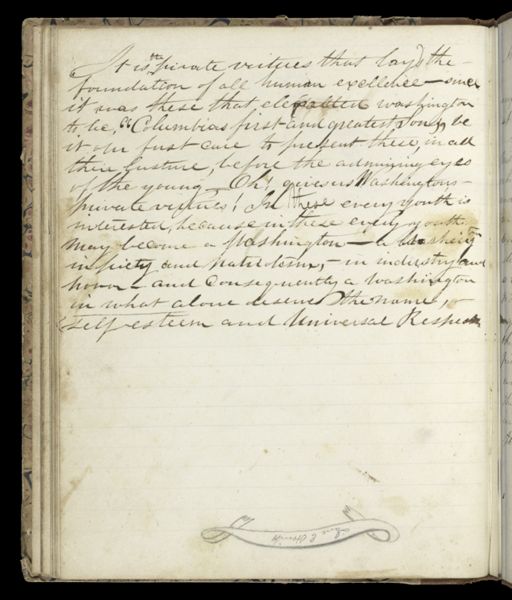 It is the private virtues that lay'd the
foundation of all human excellence – since
it was these that elevated Washington
to be, "Columbias first and greatest son," be
it our first care to present these, in all
their lusture, before the admiring eyes
of the young – Oh! give us Washingtons –
private virtues! In these every youth is
interested, because in these every youth
may become a Washington – a Washington
in piety and patriotism, – in industry and
honor – and consequently a Washington
in what alone deserves the name, –
self esteem and Universal Respect